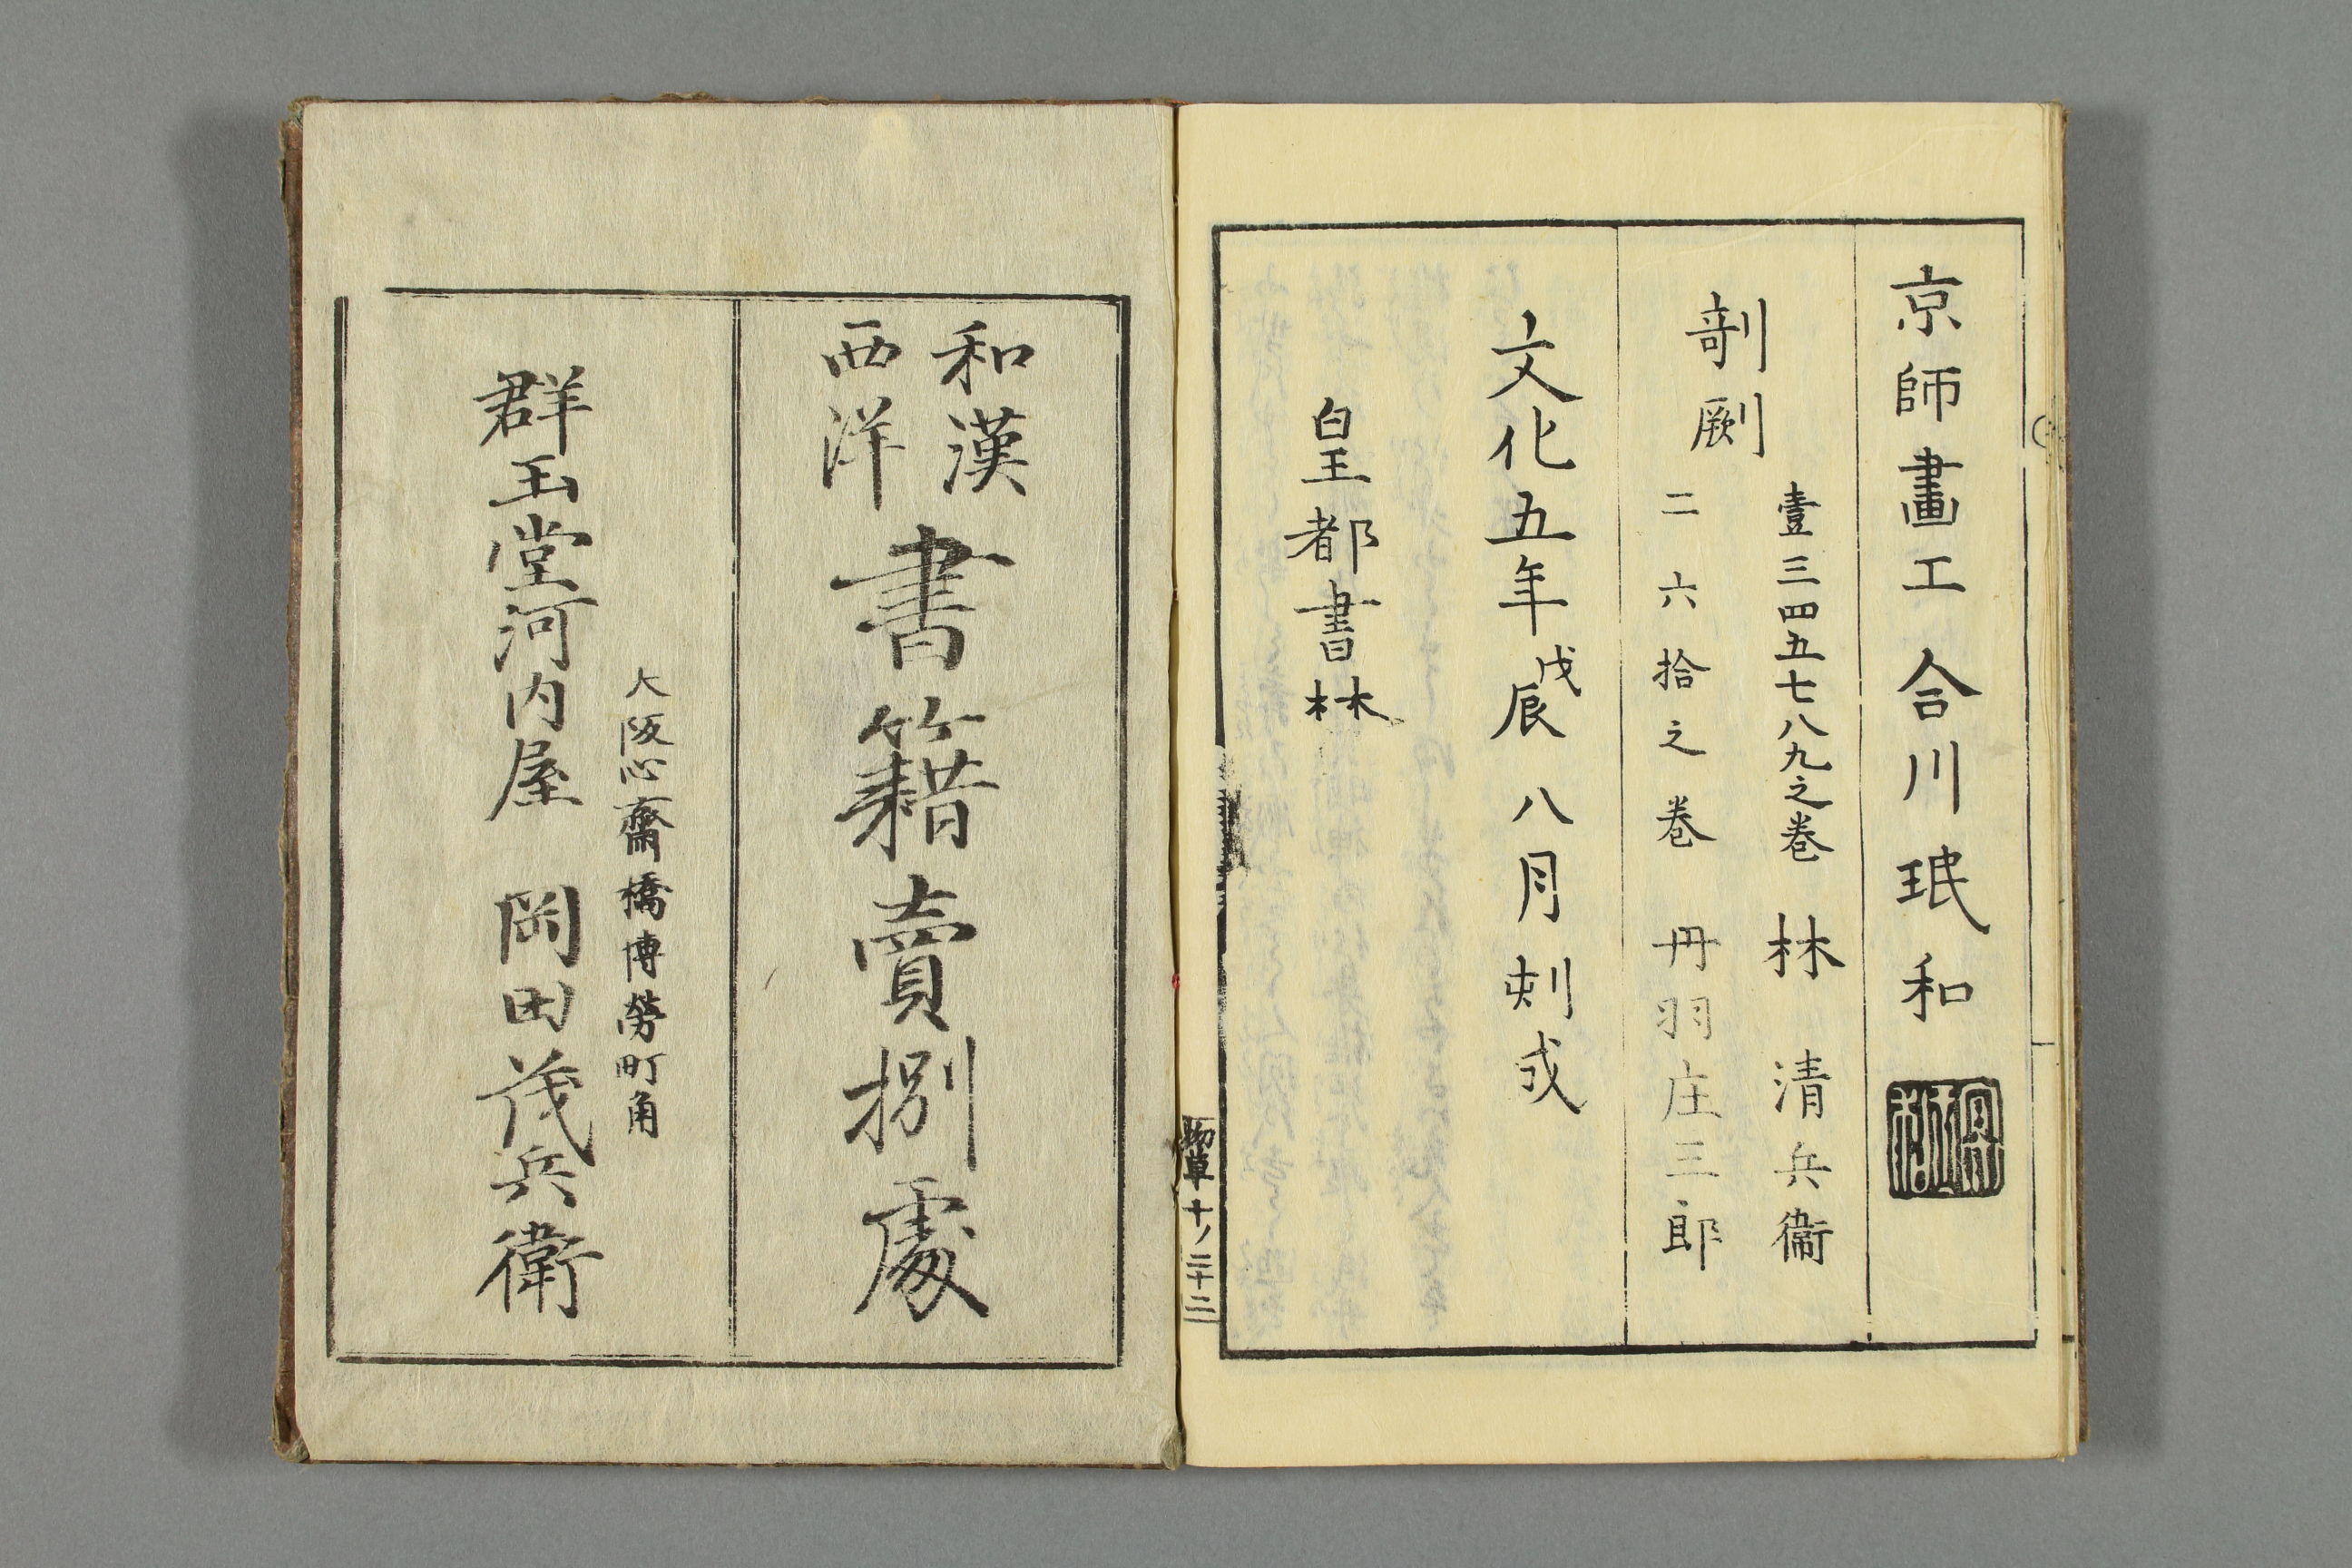 京師畫工 合川珉和
剞劂
壹三四五七八九之巻 林 清兵衞
二六拾之巻 丹羽庄三郎
文化五年戊辰八月刻成
皇都書林
物草 十ノ二十二
和漢
西洋
書籍賣捌處
大阪心齋橋博勞町角
群玉堂河内屋 岡田茂兵衛